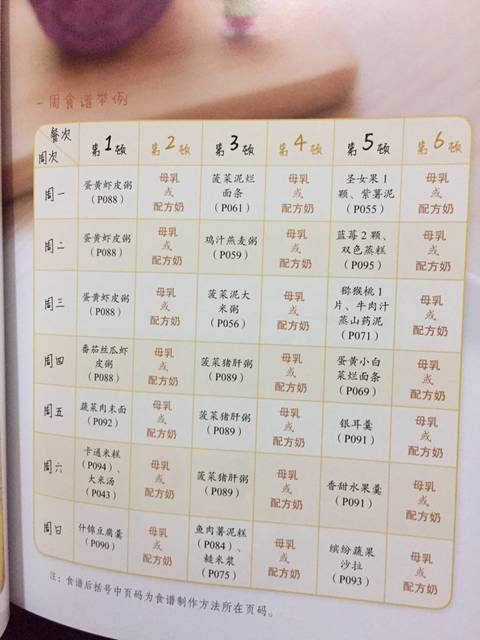 一周食谱举例
餐次
周次
第1顿
第2顿
第3顿
第4顿
第5顿
第6顿
周一
蛋黄虾皮粥
（P088）
母乳
或
配方奶
菠菜泥烂
面条
（P061）
母乳
或
配方奶
圣女果1
颗、紫薯泥
（P055）
母乳
或
配方奶
周二
蛋黄虾皮粥
（P088）
母乳
或
配方奶
鸡汁燕麦粥
（P059）
母乳
或
配方奶
蓝莓2颗、
双色蒸糕
（P095）
母乳
或
配方奶
周三
蛋黄虾皮粥
（P088）
母乳
或
配方奶
菠菜泥大
米粥
（P056）
母乳
或
配方奶
猕猴桃1
片、牛肉汁
蒸山药泥
（P071）
母乳
或
配方奶
周四
番茄丝瓜虾
皮粥
（P088）
母乳
或
配方奶
菠菜猪肝粥
（P089）
母乳
或
配方奶
蛋黄小白
菜烂面条
（P069）
母乳
或
配方奶
周五
蔬菜肉末面
（P092）
母乳
或
配方奶
菠菜猪肝粥
（P089）
母乳
或
配方奶
银耳羹
（P091）
母乳
或
配方奶
周六
卡通米糕
（P094）、
大米汤
（P043）
母乳
或
配方奶
菠菜猪肝粥
（P089）
母乳
或
配方奶
香甜水果羹
（P091）
母乳
或
配方奶
周日
什锦豆腐羹
（P090）
母乳
或
配方奶
鱼肉薯泥糕
（P084）、
糙米浆
（P075）
母乳
或
配方奶
缤纷蔬果
沙拉
（P093）
母乳
或
配方奶
注：食谱后括号中页码为食谱制作方法所在页码。